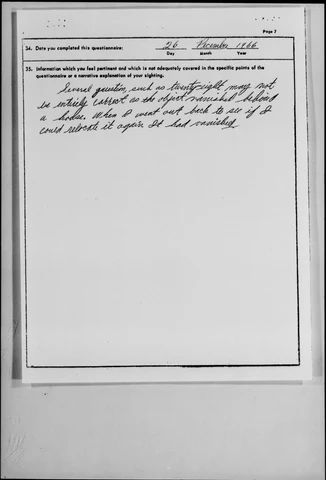 Page 7
34. Date you completed this questionnaire: 26 December 1966
Day Month Year
35. Information which you feel pertinent and which is not adequately covered in the specific points of the
questionnaire or a narrative explanation of your sighting.
Several question, such as twenty eight may not
be entirely correct as the object vanished behind
a house. When I went out back to see if I
could relocate it again It had vanished